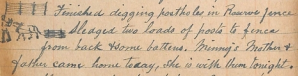 Finished digging postholes in Reserve fence
Sleaged two loads of posts to fence
from back & some battens. Munny's Mother &
father came home today, she is with them tonight.